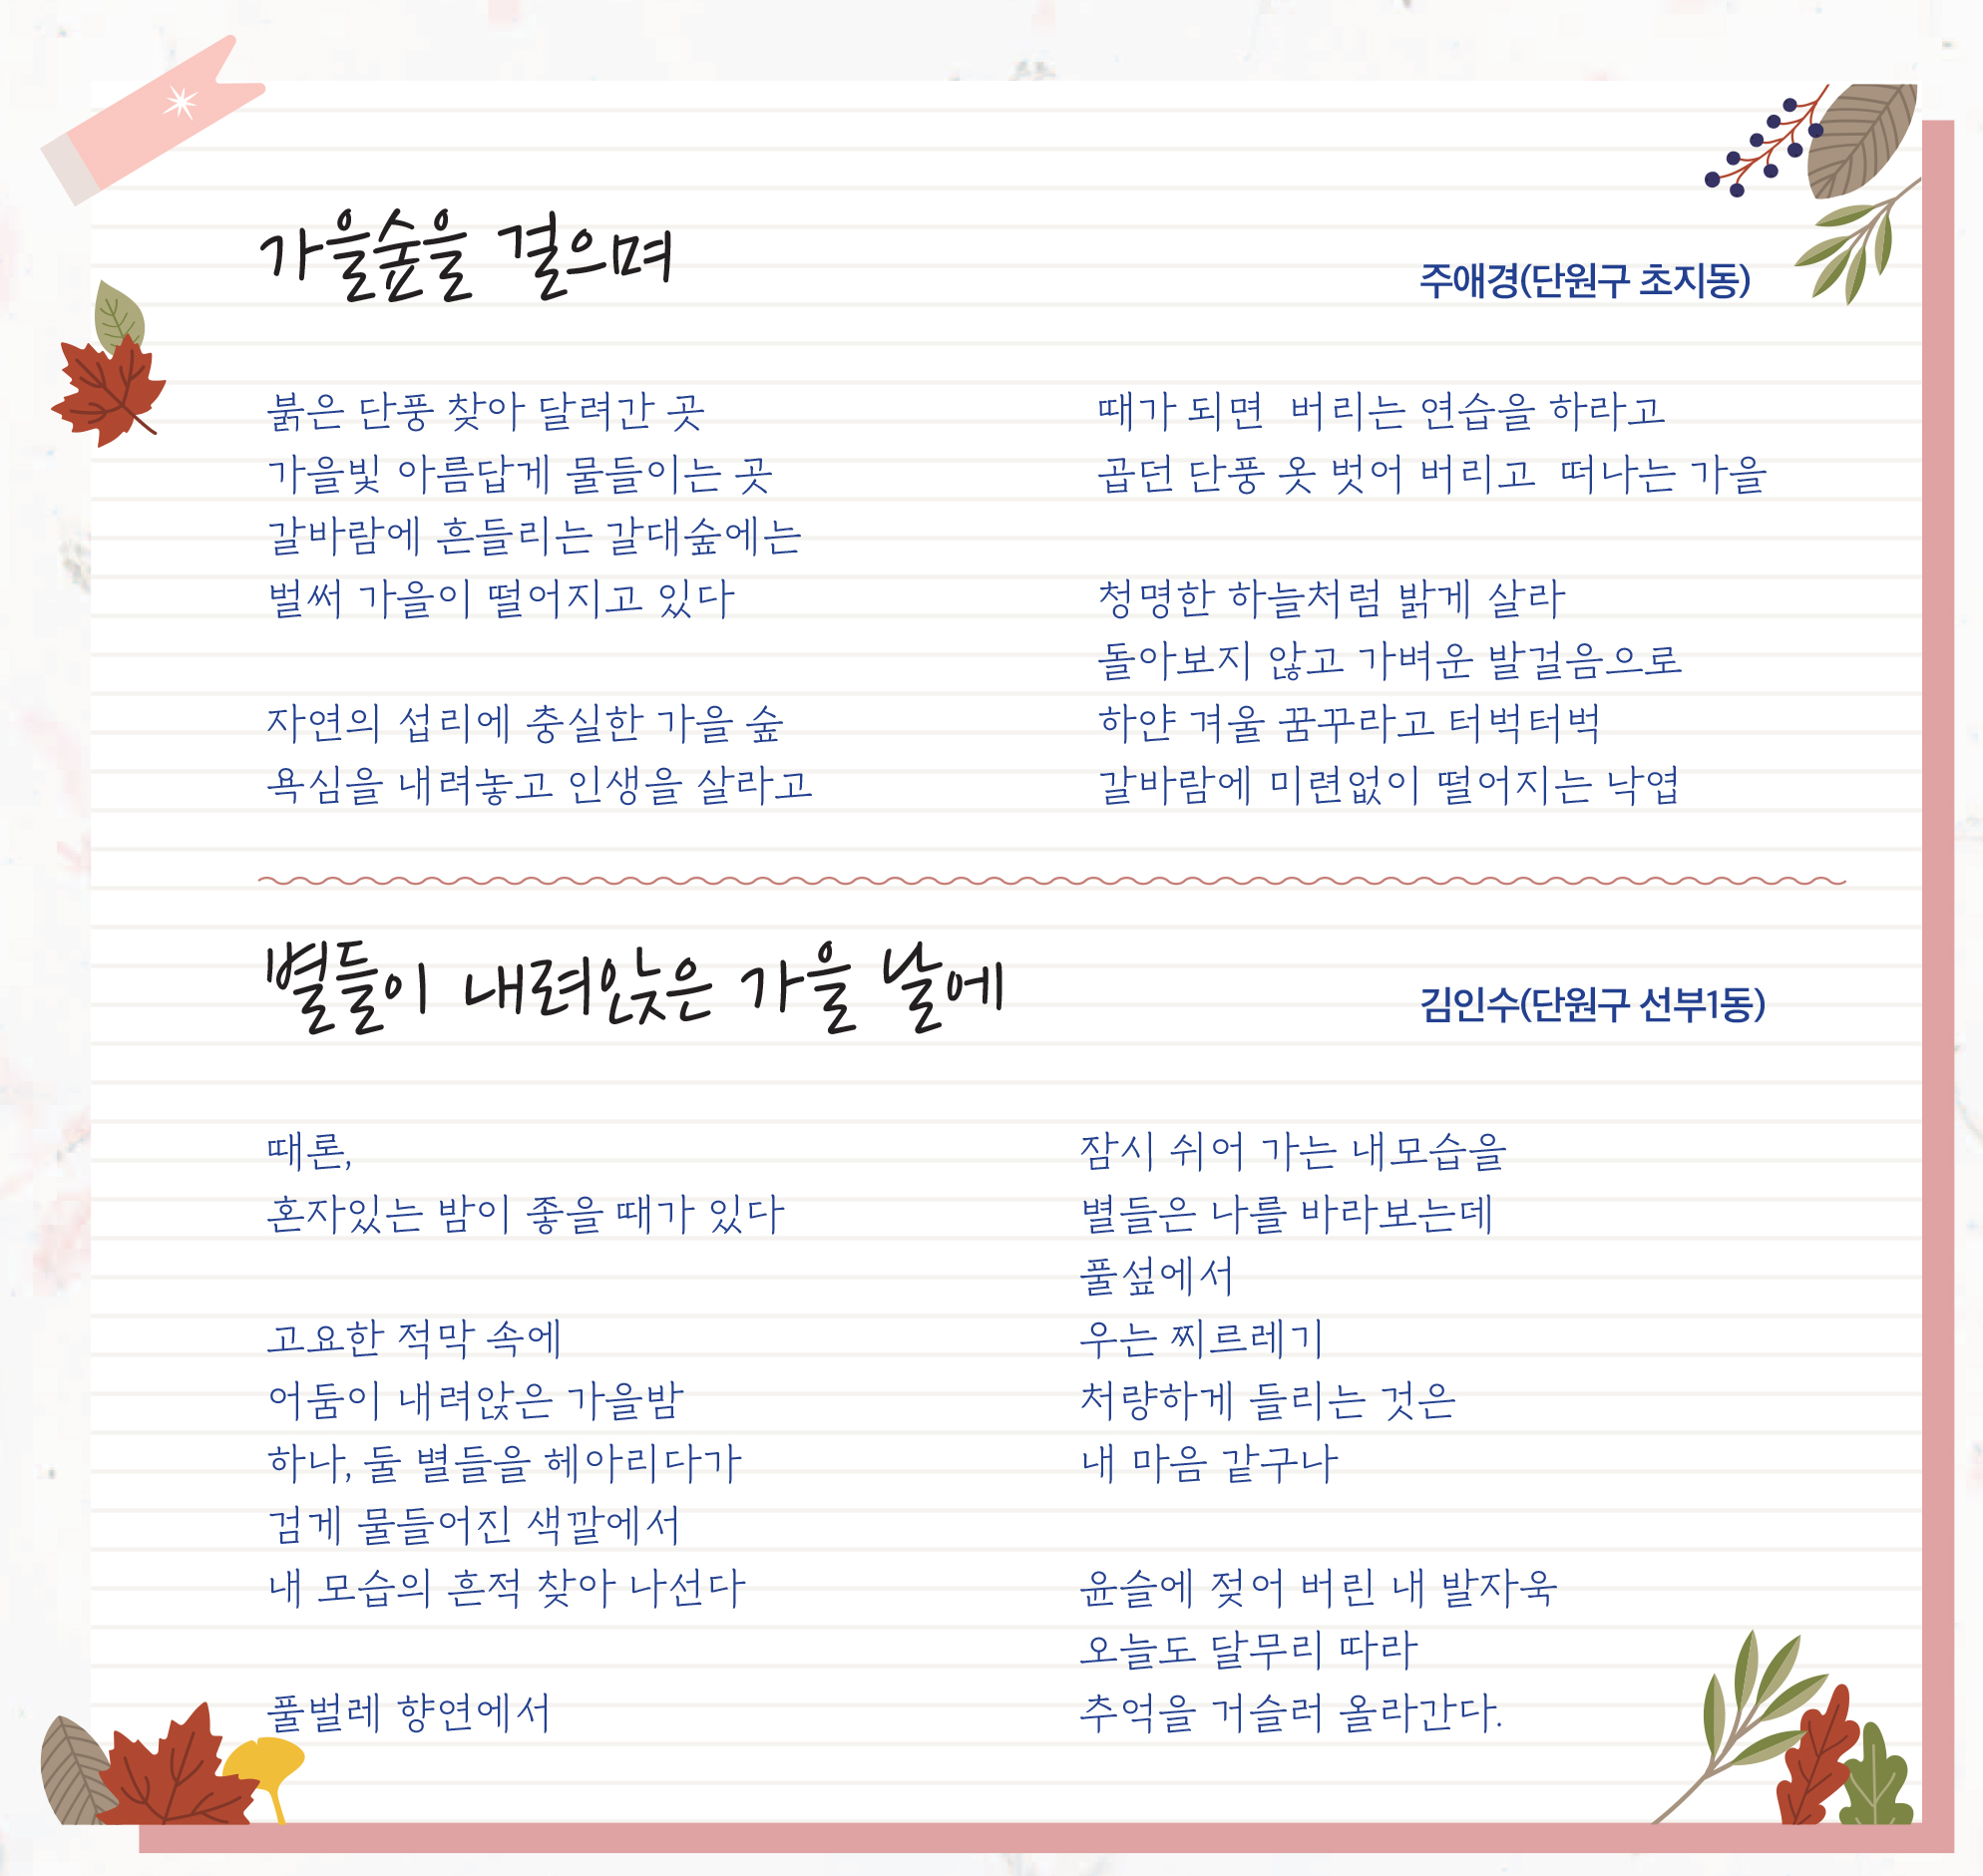 가을숲을 걸으며
주애경(단원구 초지동)
붉은 단풍 찾아 달려간 곳
가을빛 아름답게 물들이는 곳
갈바람에 흔들리는 갈대숲에는
벌써 가을이 떨어지고 있다
자연의 섭리에 충실한 가을 숲
욕심을 내려놓고 인생을 살라고
때가 되면 버리는 연습을 하라고
곱던 단풍 옷 벗어 버리고 떠나는 가을
청명한 하늘처럼 밝게 살라
돌아보지 않고 가벼운 발걸음으로
하얀 겨울 꿈꾸라고 터벅터벅
갈바람에 미련없이 떨어지는 낙엽
별들이 내려앉은 가을 날에
김인수(단원구 선부1동)
때론,
혼자있는 밤이 좋을 때가 있다
고요한 적막 속에
어둠이 내려앉은 가을밤
하나, 둘 별들을 헤아리다가
검게 물들어진 색깔에서
내 모습의 흔적 찾아 나선다
풀벌레 향연에서
잠시 쉬어 가는 내모습을
별들은 나를 바라보는데
풀섶에서
우는 찌르레기
처량하게 들리는 것은
내 마음 같구나
윤슬에 젖어 버린 내 발자욱
오늘도 달무리 따라
추억을 거슬러 올라간다.